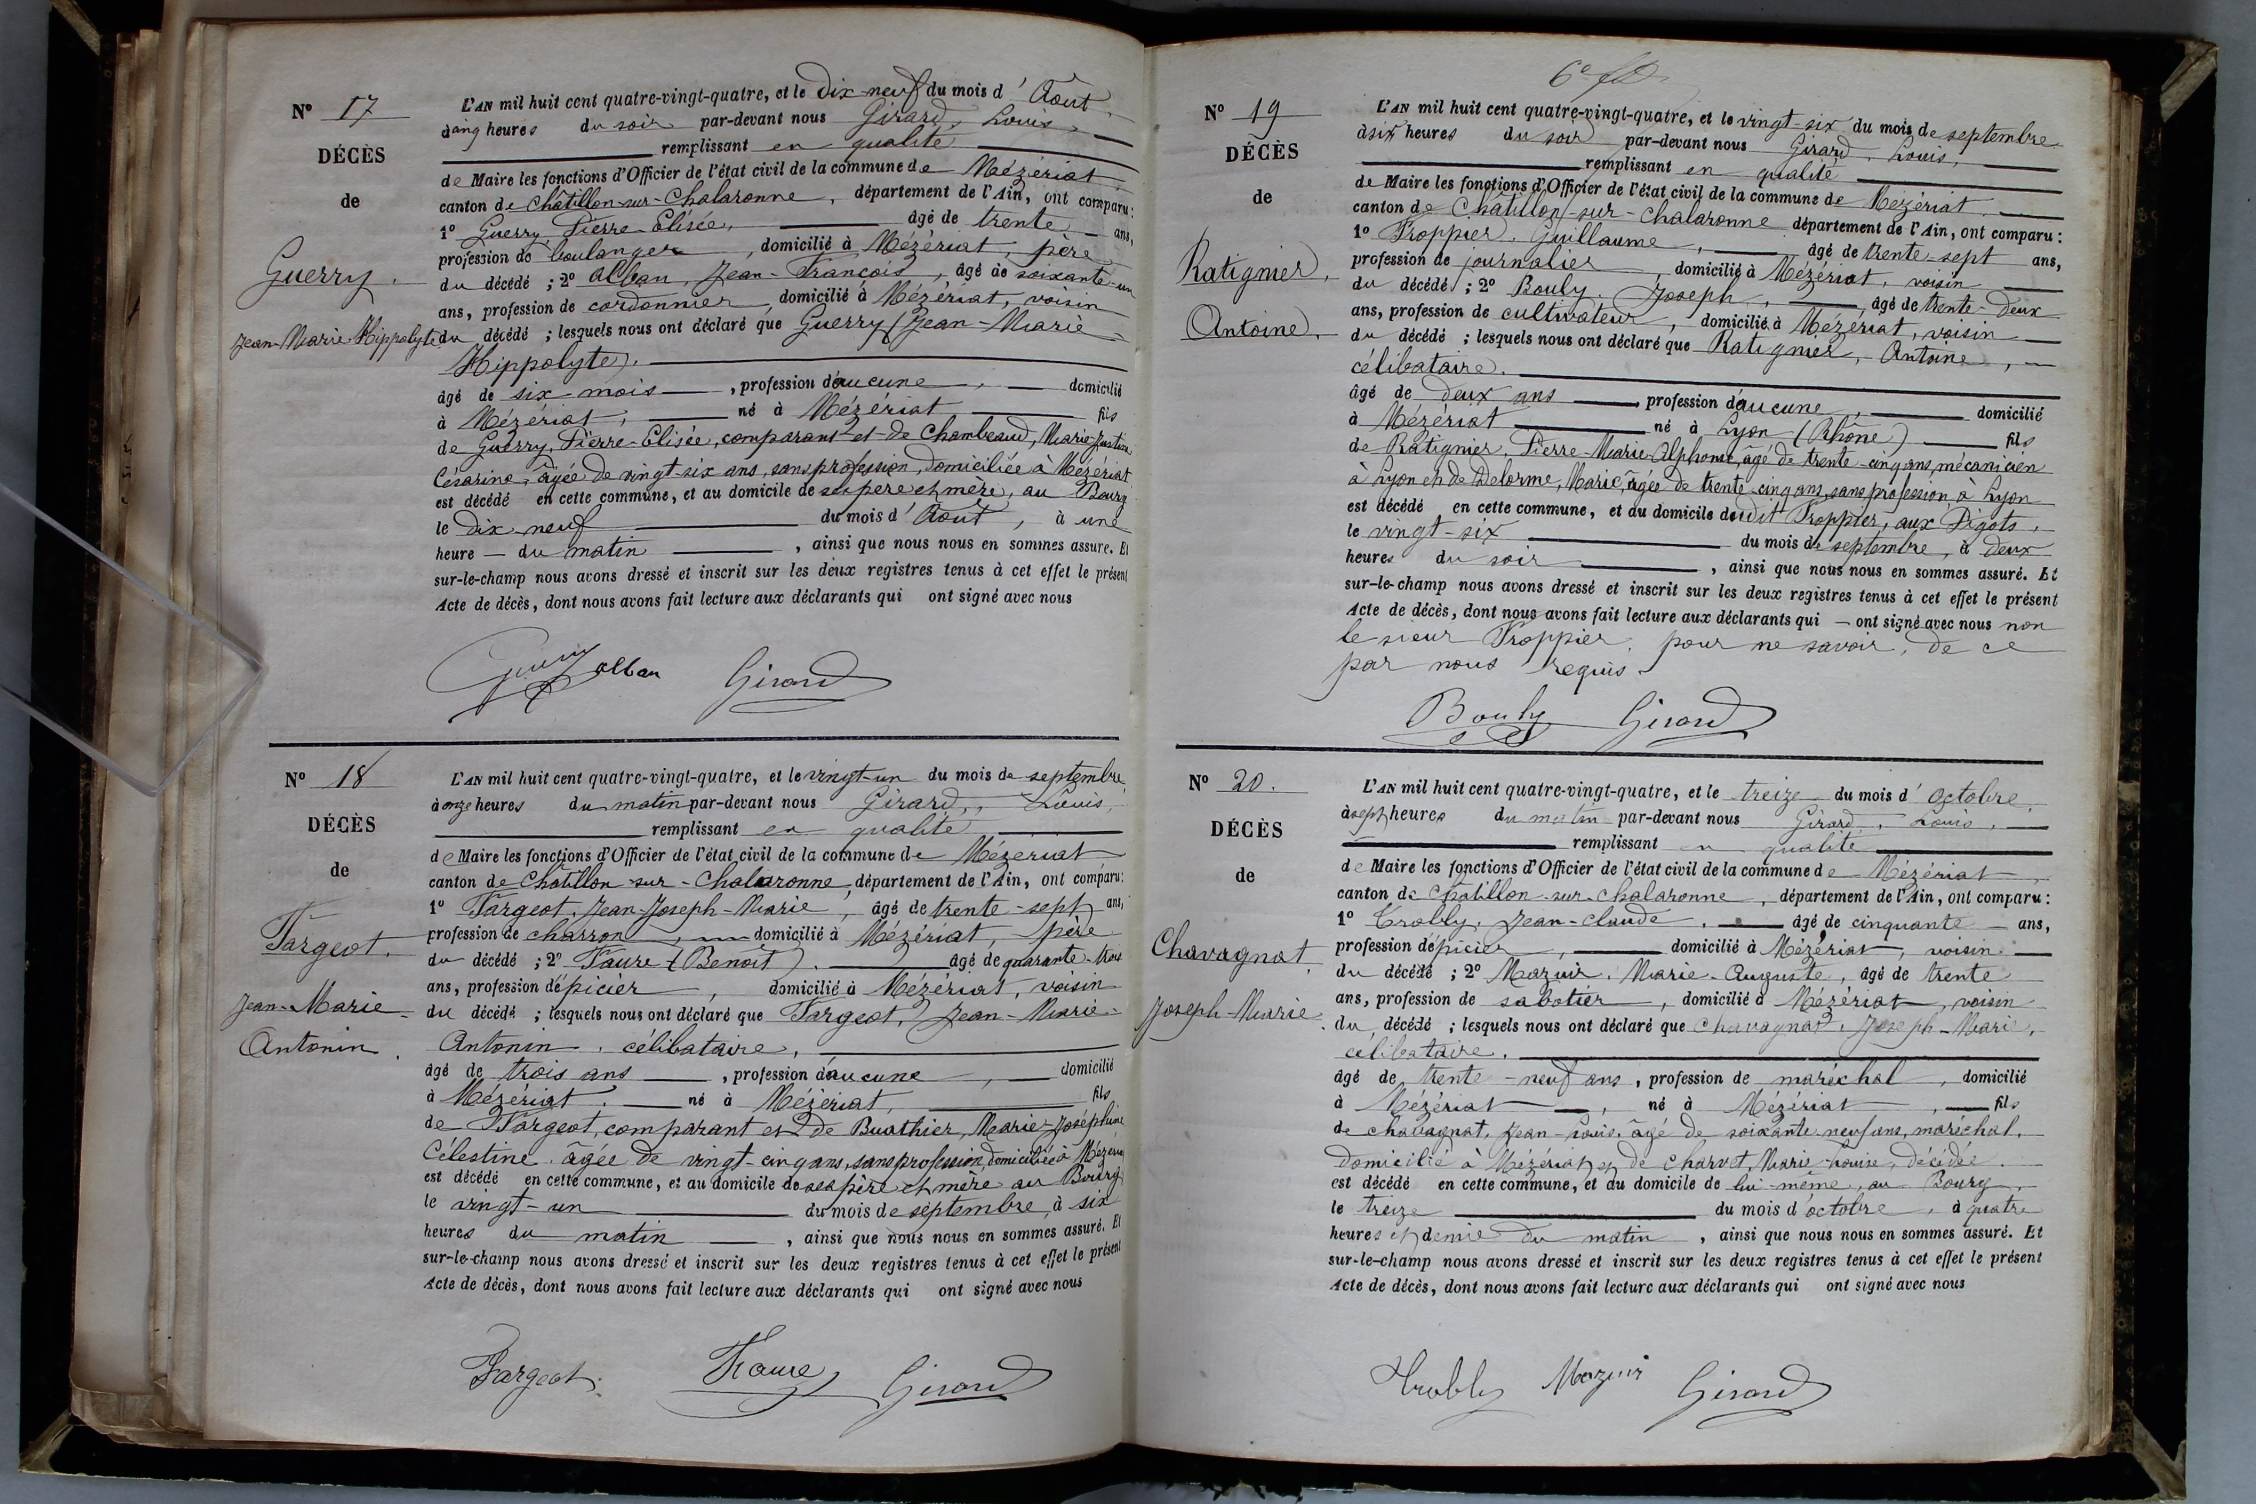 N° 17
DÉCÈS
de
Guerry.
Jean-Marie-Hippolyte
L'AN mil huit cent quatre-vingt-quatre, et le dix-neuf du mois d'Août
à cinq heures du soir par-devant nous Girard, Louis,
remplissant en qualité
de Maire les fonctions d'Officier de l'état civil de la commune de Mézériat
canton de Châtillon-sur-Chalaronne, département de l'Ain, ont comparu:
1° Guerry Pierre-Elisée, âgé de trente ans,
profession de boulanger, domicilié à Mézériat, père
du décédé ; 2° Alban, Jean-François, âgé de soixante-un
ans, profession de cordonnier, domicilié à Mézériat, voisin
du décédé ; lesquels nous ont déclaré que Guerry (Jean-Marie
Hippolyte).
âgé de six mois, profession d'aucune, domicilié
à Mézériat, né à Mézériat fils
de Guerry, Pierre-Elisée, comparant et de Chambeaud, Marie-Justine
Césarine, âgée de vingt-six ans, sans profession, domiciliée à Mézériat
est décédé en cette commune, et au domicile de ses père et mère, au Bourg
le dix neuf du mois d'Août, à une
heure du matin, ainsi que nous nous en sommes assuré. Et
sur-le-champ nous avons dressé et inscrit sur les deux registres tenus à cet effet le présent
Acte de décès, dont nous avons fait lecture aux déclarants qui ont signé avec nous
Guerry Alban Girard
N° 18
DÉCÈS
de
Fargeot.
Jean-Marie-
Antonin.
L'AN mil huit cent quatre-vingt-quatre, et le vingt-un du mois de septembre
à onze heures du matin par-devant nous Girard, Louis,
remplissant en qualité
de Maire les fonctions d'Officier de l'état civil de la commune de Mézériat
canton de Châtillon-sur-Chalaronne, département de l'Ain, ont comparu:
1° Fargeot, Jean-Joseph-Marie, âgé de trente-sept ans,
profession de charron, domicilié à Mézériat, père
du décédé ; 2° Faure (Benoit). âgé de quarante-trois
ans, profession d'épicier, domicilié à Mézériat, voisin
du décédé ; lesquels nous ont déclaré que Fargeot, Jean-Marie-
Antonin, célibataire,
âgé de trois ans, profession d'aucune, domicilié
à Mézériat. né à Mézériat, fils
de Fargeot, comparant et de Buathier, Marie-Joséphine
Célestine. âgée de vingt-cinq ans, sans profession, domiciliée à Mézériat
est décédé en cette commune, et au domicile de ses père et mère au Bourg
le vingt-un du mois de septembre, à six
heures du matin, ainsi que nous nous en sommes assuré. Et
sur-le-champ nous avons dressé et inscrit sur les deux registres tenus à cet effet le présent
Acte de décès, dont nous avons fait lecture aux déclarants qui ont signé avec nous
Fargeot Faure Girard
N° 19
DÉCÈS
de
Ratignier,
Antoine.
L'AN mil huit cent quatre-vingt-quatre, et le vingt-six du mois de septembre
à six heures du soir par-devant nous Girard, Louis,
remplissant en qualité
de Maire les fonctions d'Officier de l'état civil de la commune de Mézériat.
canton de Châtillon-sur-Chalaronne département de l'Ain, ont comparu:
1° Froppier, Guillaume, âgé de trente-sept ans,
profession de journalier, domicilié à Mézériat, voisin
du décédé ; 2° Bouly, Joseph, âgé de trente-deux
ans, profession de cultivateur, domicilié à Mézériat, voisin
du décédé ; lesquels nous ont déclaré que Ratignier, Antoine,
célibataire.
âgé de deux ans, profession d'aucune, domicilié
à Mézériat né à Lyon (Rhône) fils
de Ratignier, Pierre-Marie-Alphonse, âgé de trente-cinq ans, mécanicien
à Lyon et de Delorme, Marie, âgée de trente-cinq ans, sans profession à Lyon
est décédé en cette commune, et au domicile dudit Froppier, aux Pigots,
le vingt-six du mois de septembre, à deux
heures du soir, ainsi que nous nous en sommes assuré. Et
sur-le-champ nous avons dressé et inscrit sur les deux registres tenus à cet effet le présent
Acte de décès, dont nous avons fait lecture aux déclarants qui ont signé avec nous non
le sieur Froppier, pour ne savoir, de ce
par nous requis.
Bouly Girard
N° 20.
DÉCÈS
de
Chavagnat,
Joseph-Marie.
L'AN mil huit cent quatre-vingt-quatre, et le treize du mois d'octobre,
à sept heures du matin par-devant nous Girard, Louis,
remplissant en qualité
de Maire les fonctions d'Officier de l'état civil de la commune de Mézériat,
canton de Châtillon-sur-Chalaronne, département de l'Ain, ont comparu:
1° Trobly, Jean-Claude, âgé de cinquante ans,
profession d'épicier, domicilié à Mézériat, voisin
du décédé ; 2° Mazuir, Marie-Auguste, âgé de trente
ans, profession de sabotier, domicilié à Mézériat, voisin
du décédé ; lesquels nous ont déclaré que Chavagnat, Joseph-Marie,
célibataire.
âgé de trente-neuf ans, profession de maréchal, domicilié
à Mézériat, né à Mézériat, fils
de Chavagnat, Jean-Louis, âgé de soixante-neuf ans, maréchal,
domicilié à Mézériat et de Charvet, Marie-Louise, décédée.
est décédé en cette commune, et au domicile de lui-même, au Bourg,
le treize du mois d'octobre, à quatre
heures et demie du matin, ainsi que nous nous en sommes assuré. Et
sur-le-champ nous avons dressé et inscrit sur les deux registres tenus à cet effet le présent
Acte de décès, dont nous avons fait lecture aux déclarants qui ont signé avec nous
Trobly Mazuir Girard